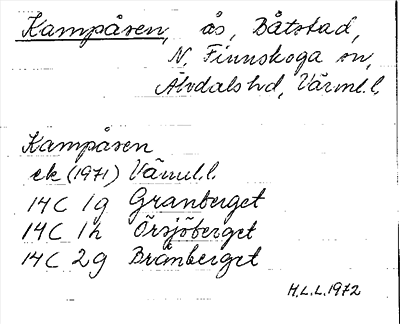 Kampåsen, ås, Båtstad,
N. Finnskoga sn,
Älvdals hd, Värml. l.
Kampåsen
ek (1971) Värml. l.
14C 1g Granberget
14C 1h Örsjöberget
14C 2g Brånberget
H.L.L. 1972